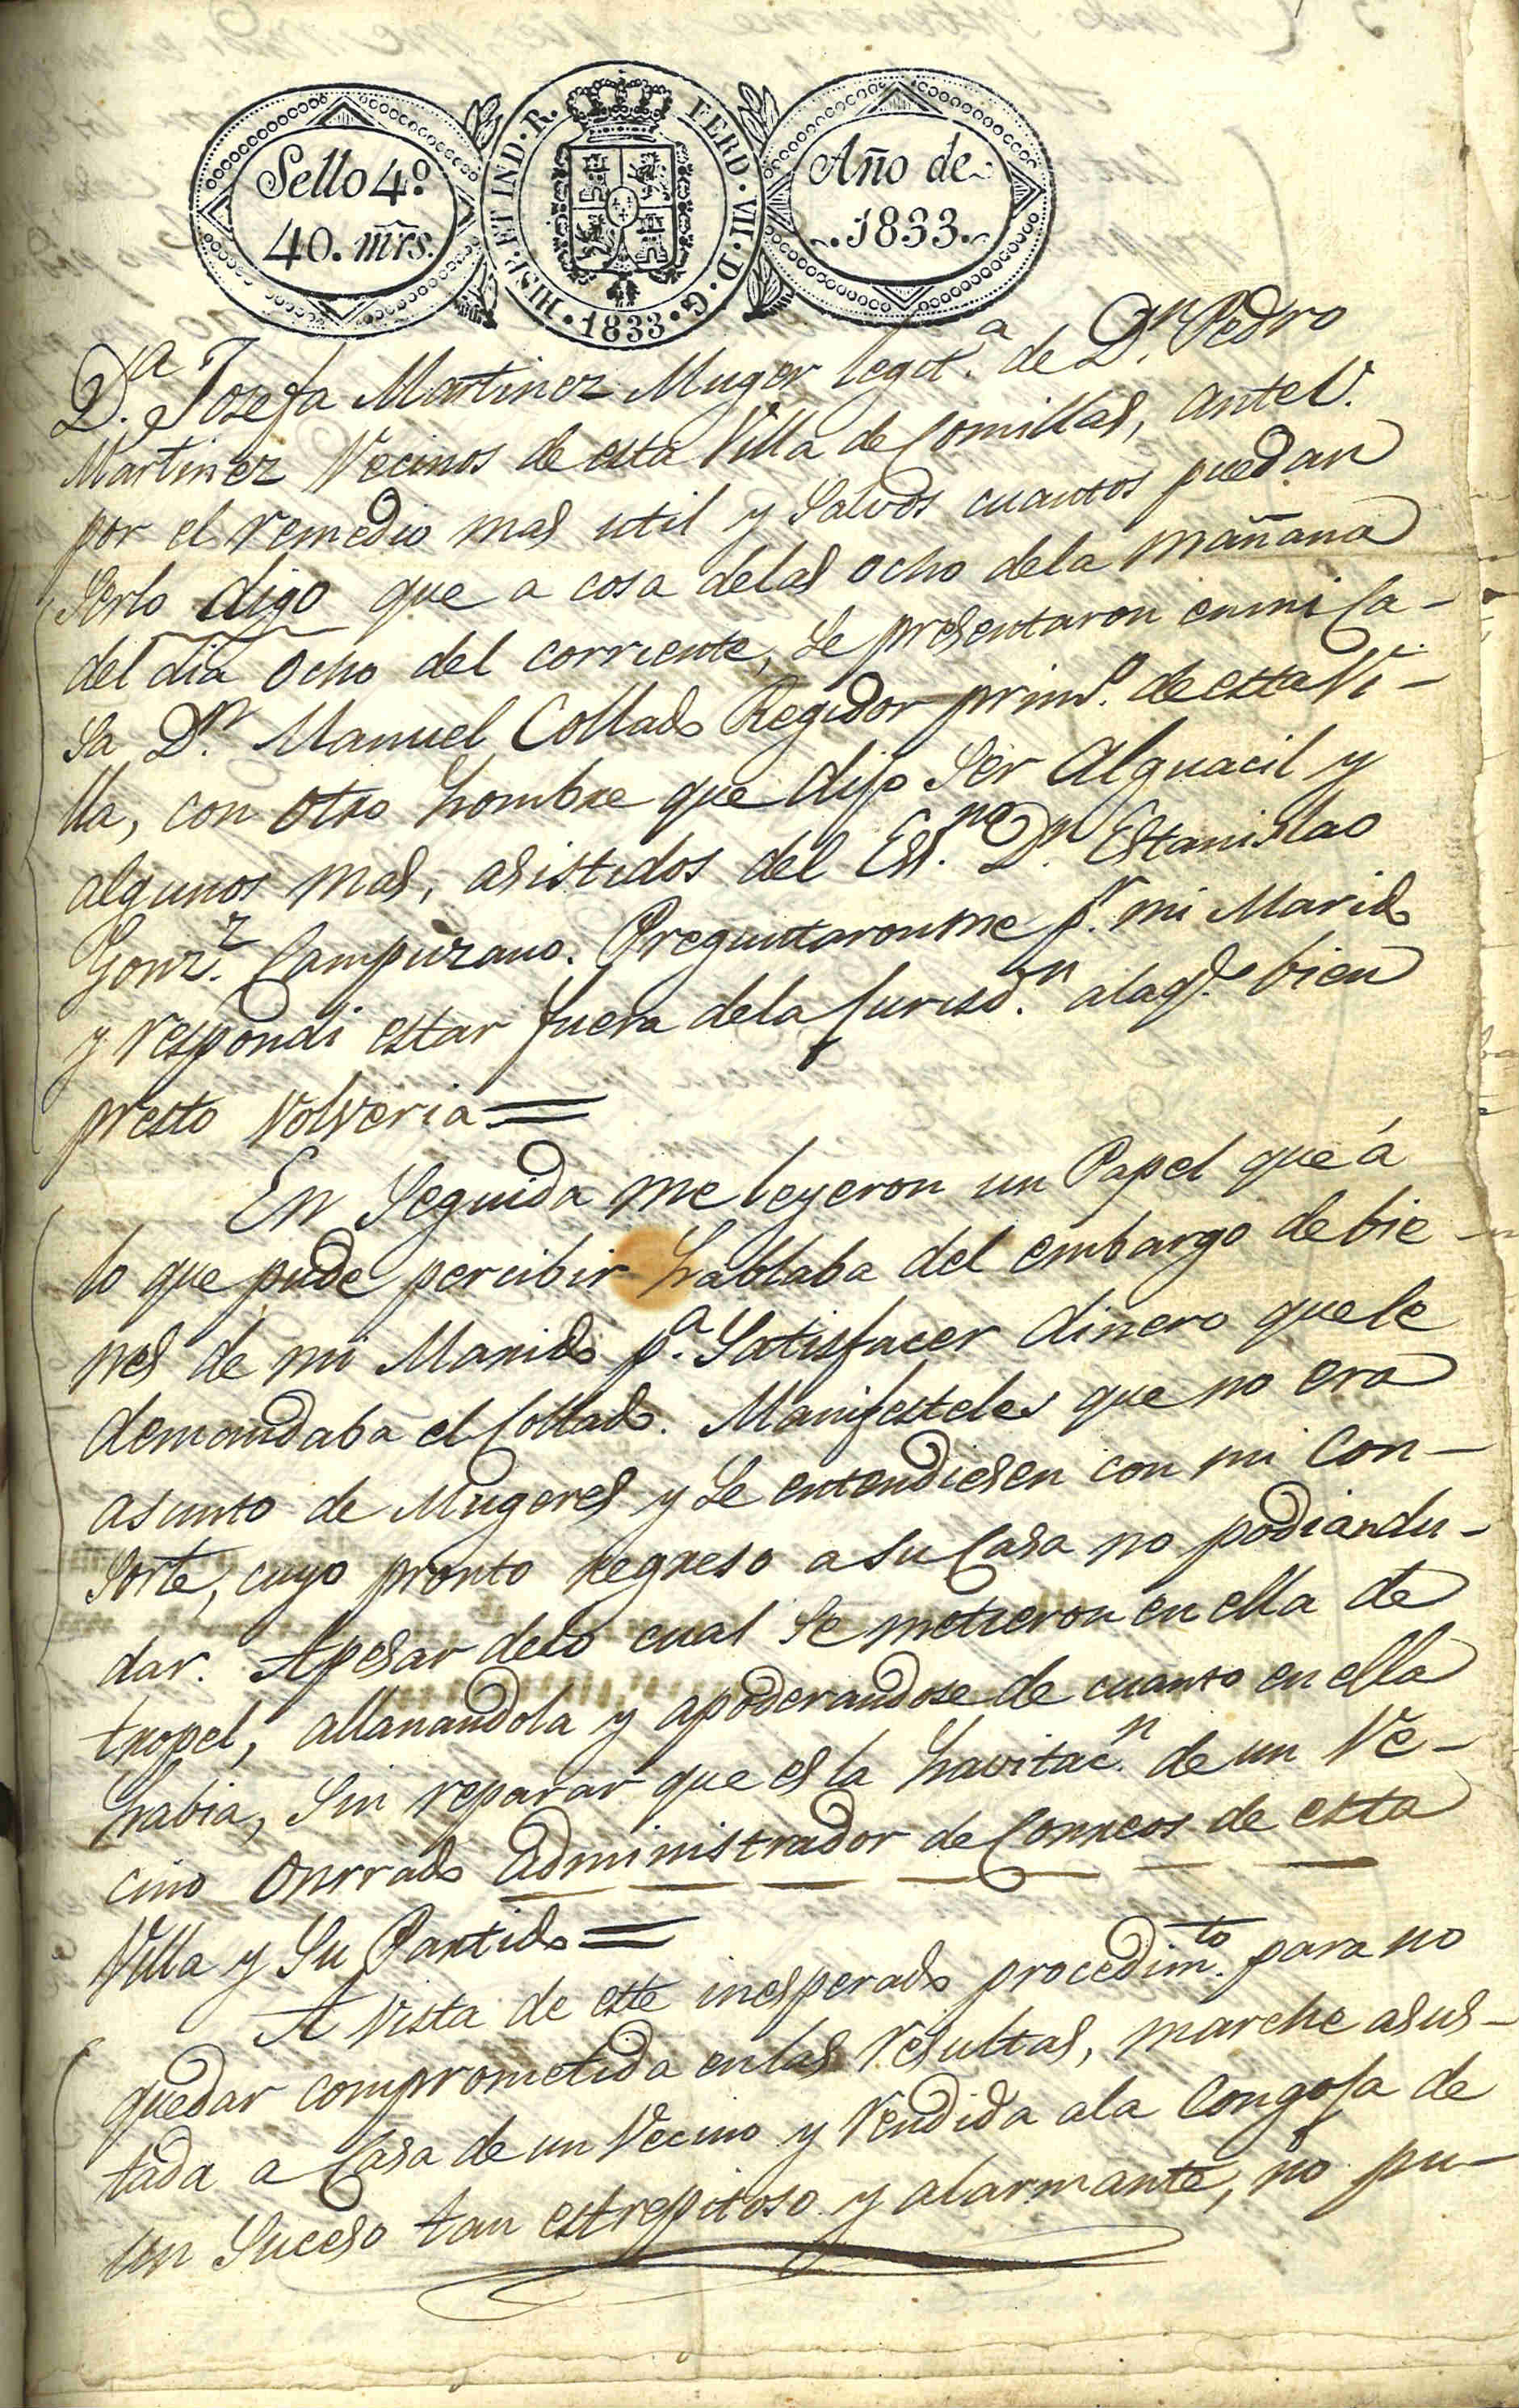 Sello 4º
40. mrs.
HISP. ET IND. R. FERD. VII. D. G. 1833
Año de
1833.
D.ª Josefa Martinez Muger legit.ª de D.n Pedro
Martinez Vecinos de esta Villa de Comillas, ante V.
por el remedio mas util y Salvos cuantos puedan
Serlo digo que a cosa delas ocho dela mañana
del dia ocho del corriente, Se presentaron enmi Ca-
sa D.n Manuel Collado Regidor prim.º de esta Vi-
lla, con otro hombre que dijo Ser Alguacil y
algunos mas, asistidos del Ess.no D.n Estanislao
Gonz.z Campuzano. Preguntaronme p.r mi Marido
y respondi estar fuera dela Jurisd.n alaq.e bien
presto Volveria=
En Seguida me leyeron un Papel que á
lo que pude percibir hablaba del embargo de bie-
nes de mi Marido p.a Satisfacer dinero quele
demandaba el Collado. Manifesteles que no era
asunto de Mugeres y Se entendiesen con mi Con-
sorte, cuyo pronto regreso a su Casa no podiandu-
dar. Apesar delo cual Se metieron en ella de
tropel, allanandola y apoderandose de cuanto en ella
habia, Sin reparar que es la havitac.n de un Ve-
cino Onrrado Administrador de Correos de esta
Villa y Su Partido=
A Vista de este inesperado procedim.to para no
quedar comprometida enlas resultas, marche asus-
tada a Casa de un Vecino y Rendida ala Congoja de
un Suceso tan estrepitoso y alarmante, no pu-